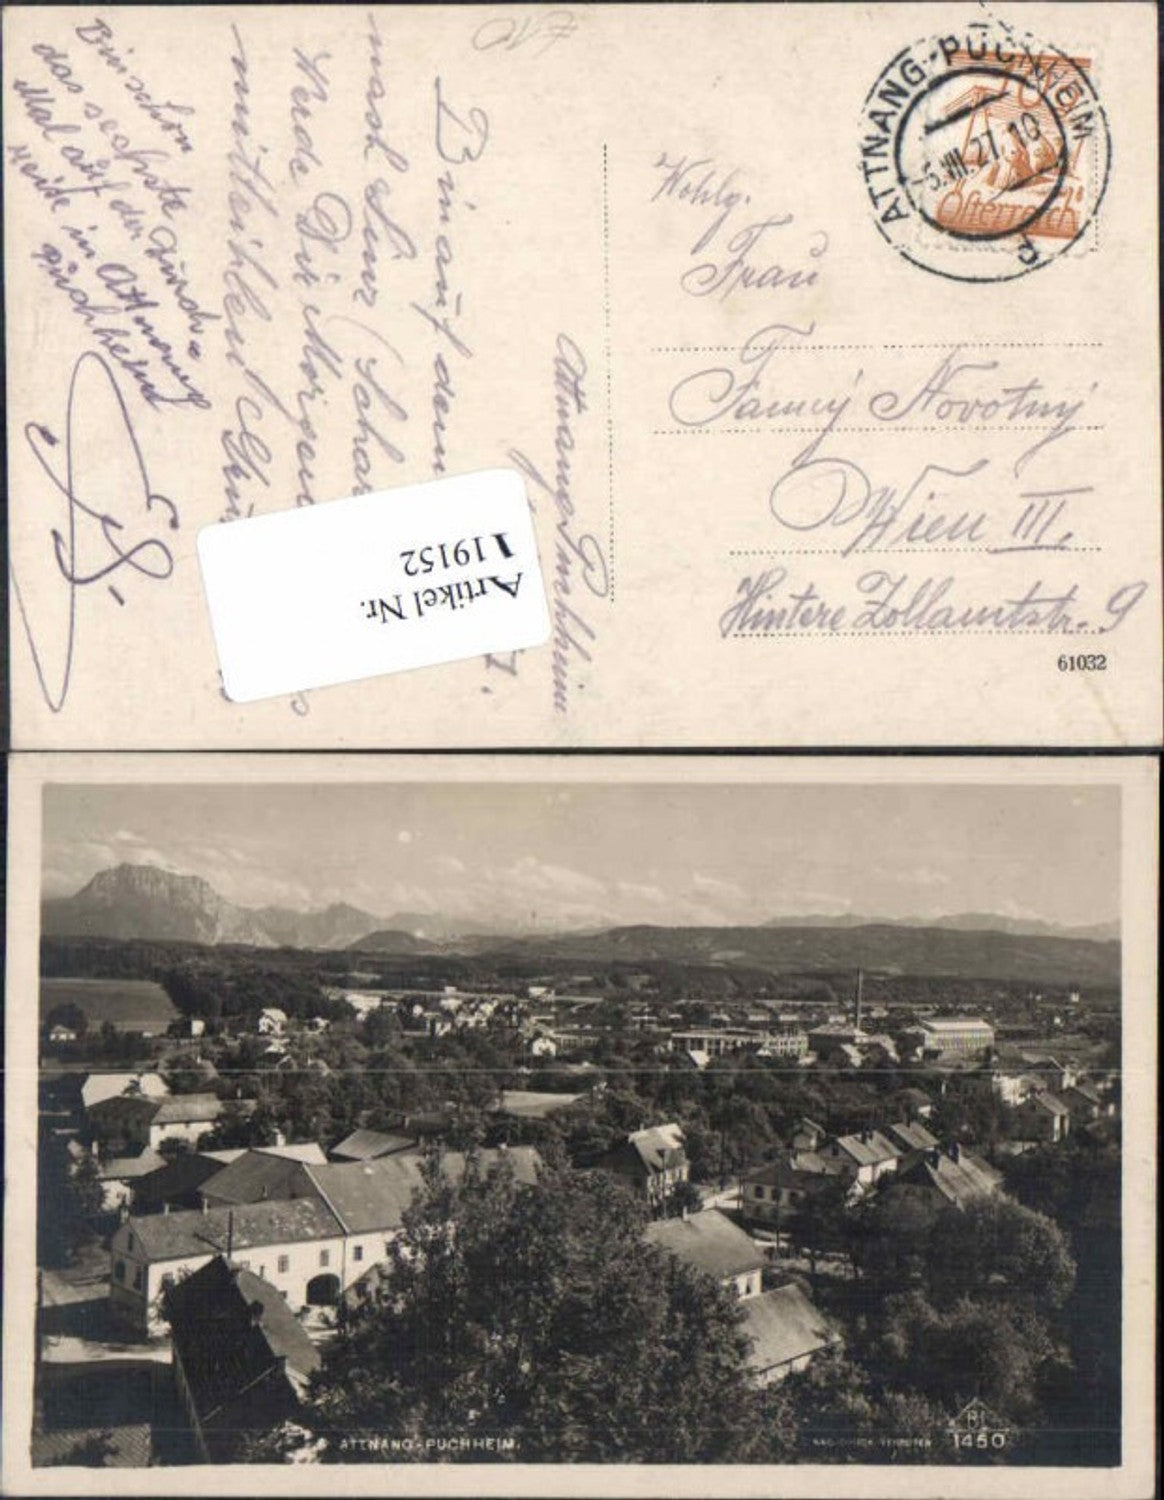 Attnang Puchheim
Bin auf dem
nach
Werde Dir Morgen
mitteilen
Bin schon
das sechste
Mal auf der Durch
reise in Attnang
Puchheim
ATTNANG-PUCHHEIM
5.VII.27.10
Österreich
Wohlg.
Frau
Fanny Novotny
Wien III.
Hintere Zollamtstr. 9
61032
Artikel Nr.
119152
ATTNANG-PUCHHEIM.
RI
1450